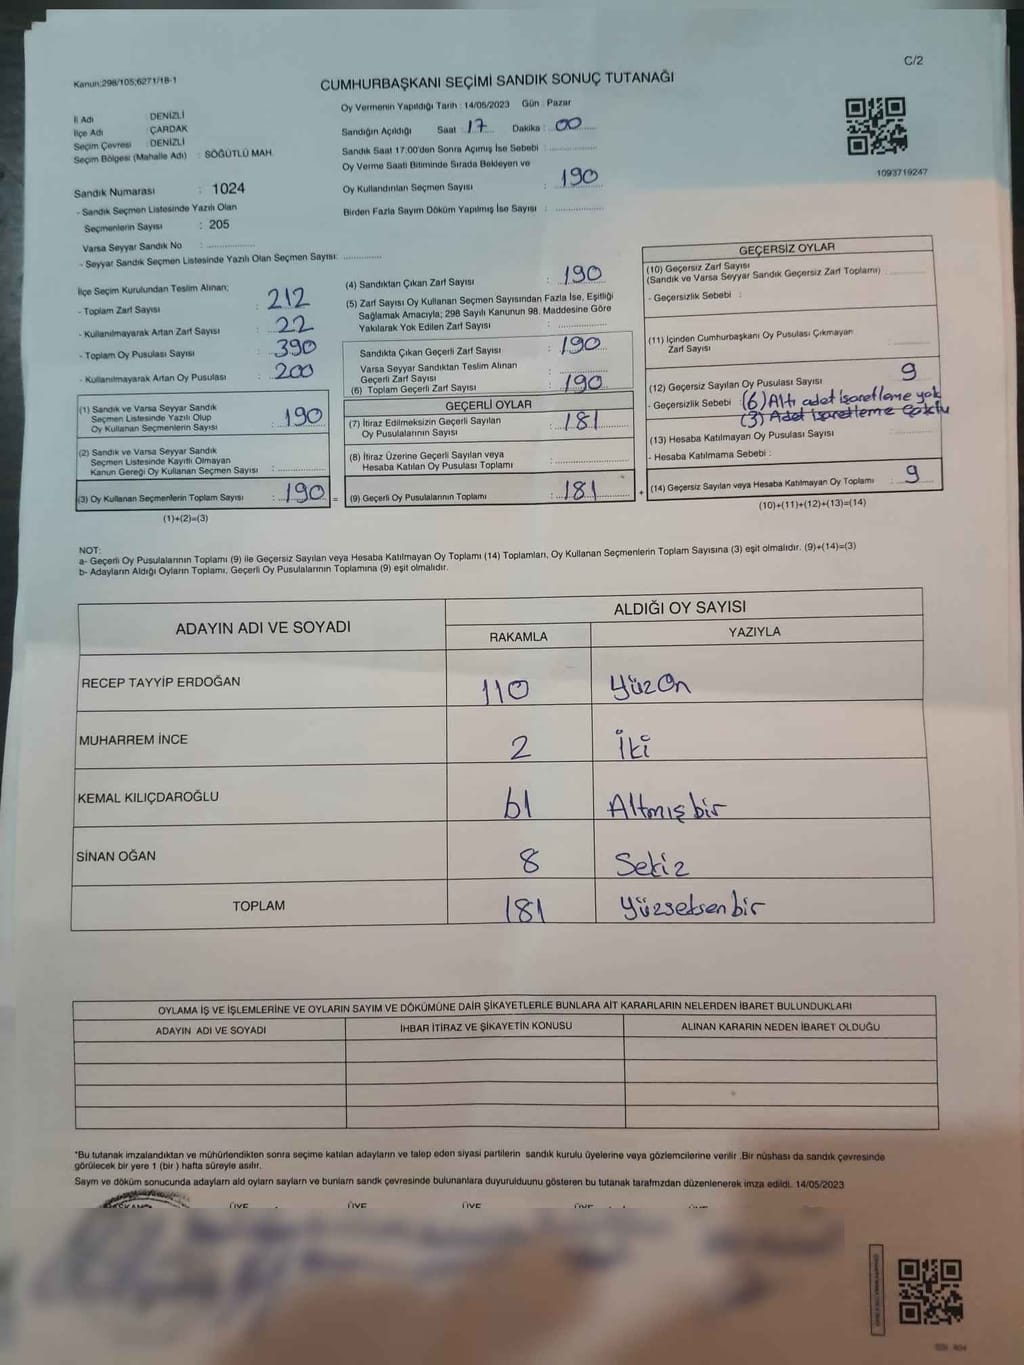 C/2
Kanun:298/105;6271/18-1
CUMHURBAŞKANI SEÇİMİ SANDIK SONUÇ TUTANAĞI
İl Adı : DENİZLİ
İlçe Adı : ÇARDAK
Seçim Çevresi : DENİZLİ
Seçim Bölgesi (Mahalle Adı) : SÖĞÜTLÜ MAH.
Sandık Numarası : 1024
- Sandık Seçmen Listesinde Yazılı Olan
Seçmenlerin Sayısı : 205
Varsa Seyyar Sandık No :
- Seyyar Sandık Seçmen Listesinde Yazılı Olan Seçmen Sayısı:
Oy Vermenin Yapıldığı Tarih : 14/05/2023 Gün : Pazar
Sandığın Açıldığı Saat : 17 Dakika : 00
Sandık Saat 17:00'den Sonra Açımış İse Sebebi :
Oy Verme Saati Bitiminde Sırada Bekleyen ve
Oy Kullandırılan Seçmen Sayısı : 190
Birden Fazla Sayım Döküm Yapılmış İse Sayısı :
1093719247
İlçe Seçim Kurulundan Teslim Alınan;
- Toplam Zarf Sayısı : 212
- Kullanılmayarak Artan Zarf Sayısı : 22
- Toplam Oy Pusulası Sayısı : 390
- Kullanılmayarak Artan Oy Pusulası : 200
(1) Sandık ve Varsa Seyyar Sandık
Seçmen Listesinde Yazılı Olup
Oy Kullanan Seçmenlerin Sayısı : 190
(2) Sandık ve Varsa Seyyar Sandık
Seçmen Listesinde Kayıtlı Olmayan
Kanun Gereği Oy Kullanan Seçmen Sayısı :
(3) Oy Kullanan Seçmenlerin Toplam Sayısı : 190 =
(1)+(2)=(3)
(4) Sandıktan Çıkan Zarf Sayısı : 190
(5) Zarf Sayısı Oy Kullanan Seçmen Sayısından Fazla İse, Eşitliği
Sağlamak Amacıyla; 298 Sayılı Kanunun 98. Maddesine Göre
Yakılarak Yok Edilen Zarf Sayısı :
Sandıkta Çıkan Geçerli Zarf Sayısı : 190
Varsa Seyyar Sandıktan Teslim Alınan
Geçerli Zarf Sayısı :
(6) Toplam Geçerli Zarf Sayısı : 190
GEÇERLİ OYLAR
(7) İtiraz Edilmeksizin Geçerli Sayılan
Oy Pusulalarının Sayısı : 181
(8) İtiraz Üzerine Geçerli Sayılan veya
Hesaba Katılan Oy Pusulası Toplamı :
(9) Geçerli Oy Pusulalarının Toplamı : 181 +
GEÇERSİZ OYLAR
(10) Geçersiz Zarf Sayısı
(Sandık ve Varsa Seyyar Sandık Geçersiz Zarf Toplamı) :
- Geçersizlik Sebebi :
(11) İçinden Cumhurbaşkanı Oy Pusulası Çıkmayan
Zarf Sayısı :
(12) Geçersiz Sayılan Oy Pusulası Sayısı : 9
- Geçersizlik Sebebi : (6) Altı adet işaretleme yok
(3) Adet işaretleme çoktu
(13) Hesaba Katılmayan Oy Pusulası Sayısı :
- Hesaba Katılmama Sebebi :
(14) Geçersiz Sayılan veya Hesaba Katılmayan Oy Toplamı : 9
(10)+(11)+(12)+(13)=(14)
NOT:
a- Geçerli Oy Pusulalarının Toplamı (9) ile Geçersiz Sayılan veya Hesaba Katılmayan Oy Toplamı (14) Toplamları, Oy Kullanan Seçmenlerin Toplam Sayısına (3) eşit olmalıdır. (9)+(14)=(3)
b- Adayların Aldığı Oyların Toplamı, Geçerli Oy Pusulalarının Toplamına (9) eşit olmalıdır.
ADAYIN ADI VE SOYADI ALDIĞI OY SAYISI
RAKAMLA YAZIYLA
RECEP TAYYİP ERDOĞAN 110 YüzOn
MUHARREM İNCE 2 İki
KEMAL KILIÇDAROĞLU 61 Altmışbir
SİNAN OĞAN 8 Sekiz
TOPLAM 181 Yüzseksenbir
OYLAMA İŞ VE İŞLEMLERİNE VE OYLARIN SAYIM VE DÖKÜMÜNE DAİR ŞİKAYETLERLE BUNLARA AİT KARARLARIN NELERDEN İBARET BULUNDUKLARI
ADAYIN ADI VE SOYADI İHBAR İTİRAZ VE ŞİKAYETİN KONUSU ALINAN KARARIN NEDEN İBARET OLDUĞU
*Bu tutanak imzalandıktan ve mühürlendikten sonra seçime katılan adayların ve talep eden siyasi partilerin sandık kurulu üyelerine veya gözlemcilerine verilir .Bir nüshası da sandık çevresinde
görülecek bir yere 1 (bir ) hafta süreyle asılır.
Sayım ve döküm sonucunda adayların ald oyların sayların ve bunların sandk çevresinde bulunanlara duyurulduunu gösteren bu tutanak tarafmzdan düzenlenerek imza edildi. 14/05/2023
ÜYE ÜYE ÜYE ÜYE